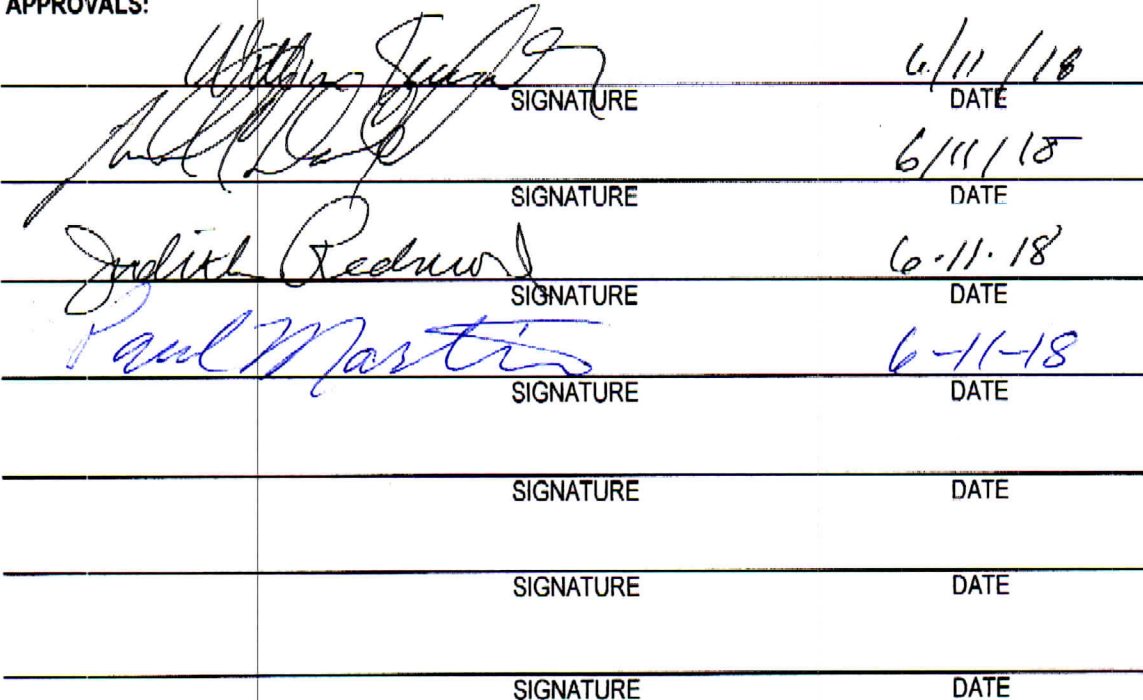 APPROVALS:
6/11/18
SIGNATURE DATE
6/11/18
SIGNATURE DATE
Judith 6-11-18
SIGNATURE DATE
Paul Martin 6-11-18
SIGNATURE DATE
SIGNATURE DATE
SIGNATURE DATE
SIGNATURE DATE